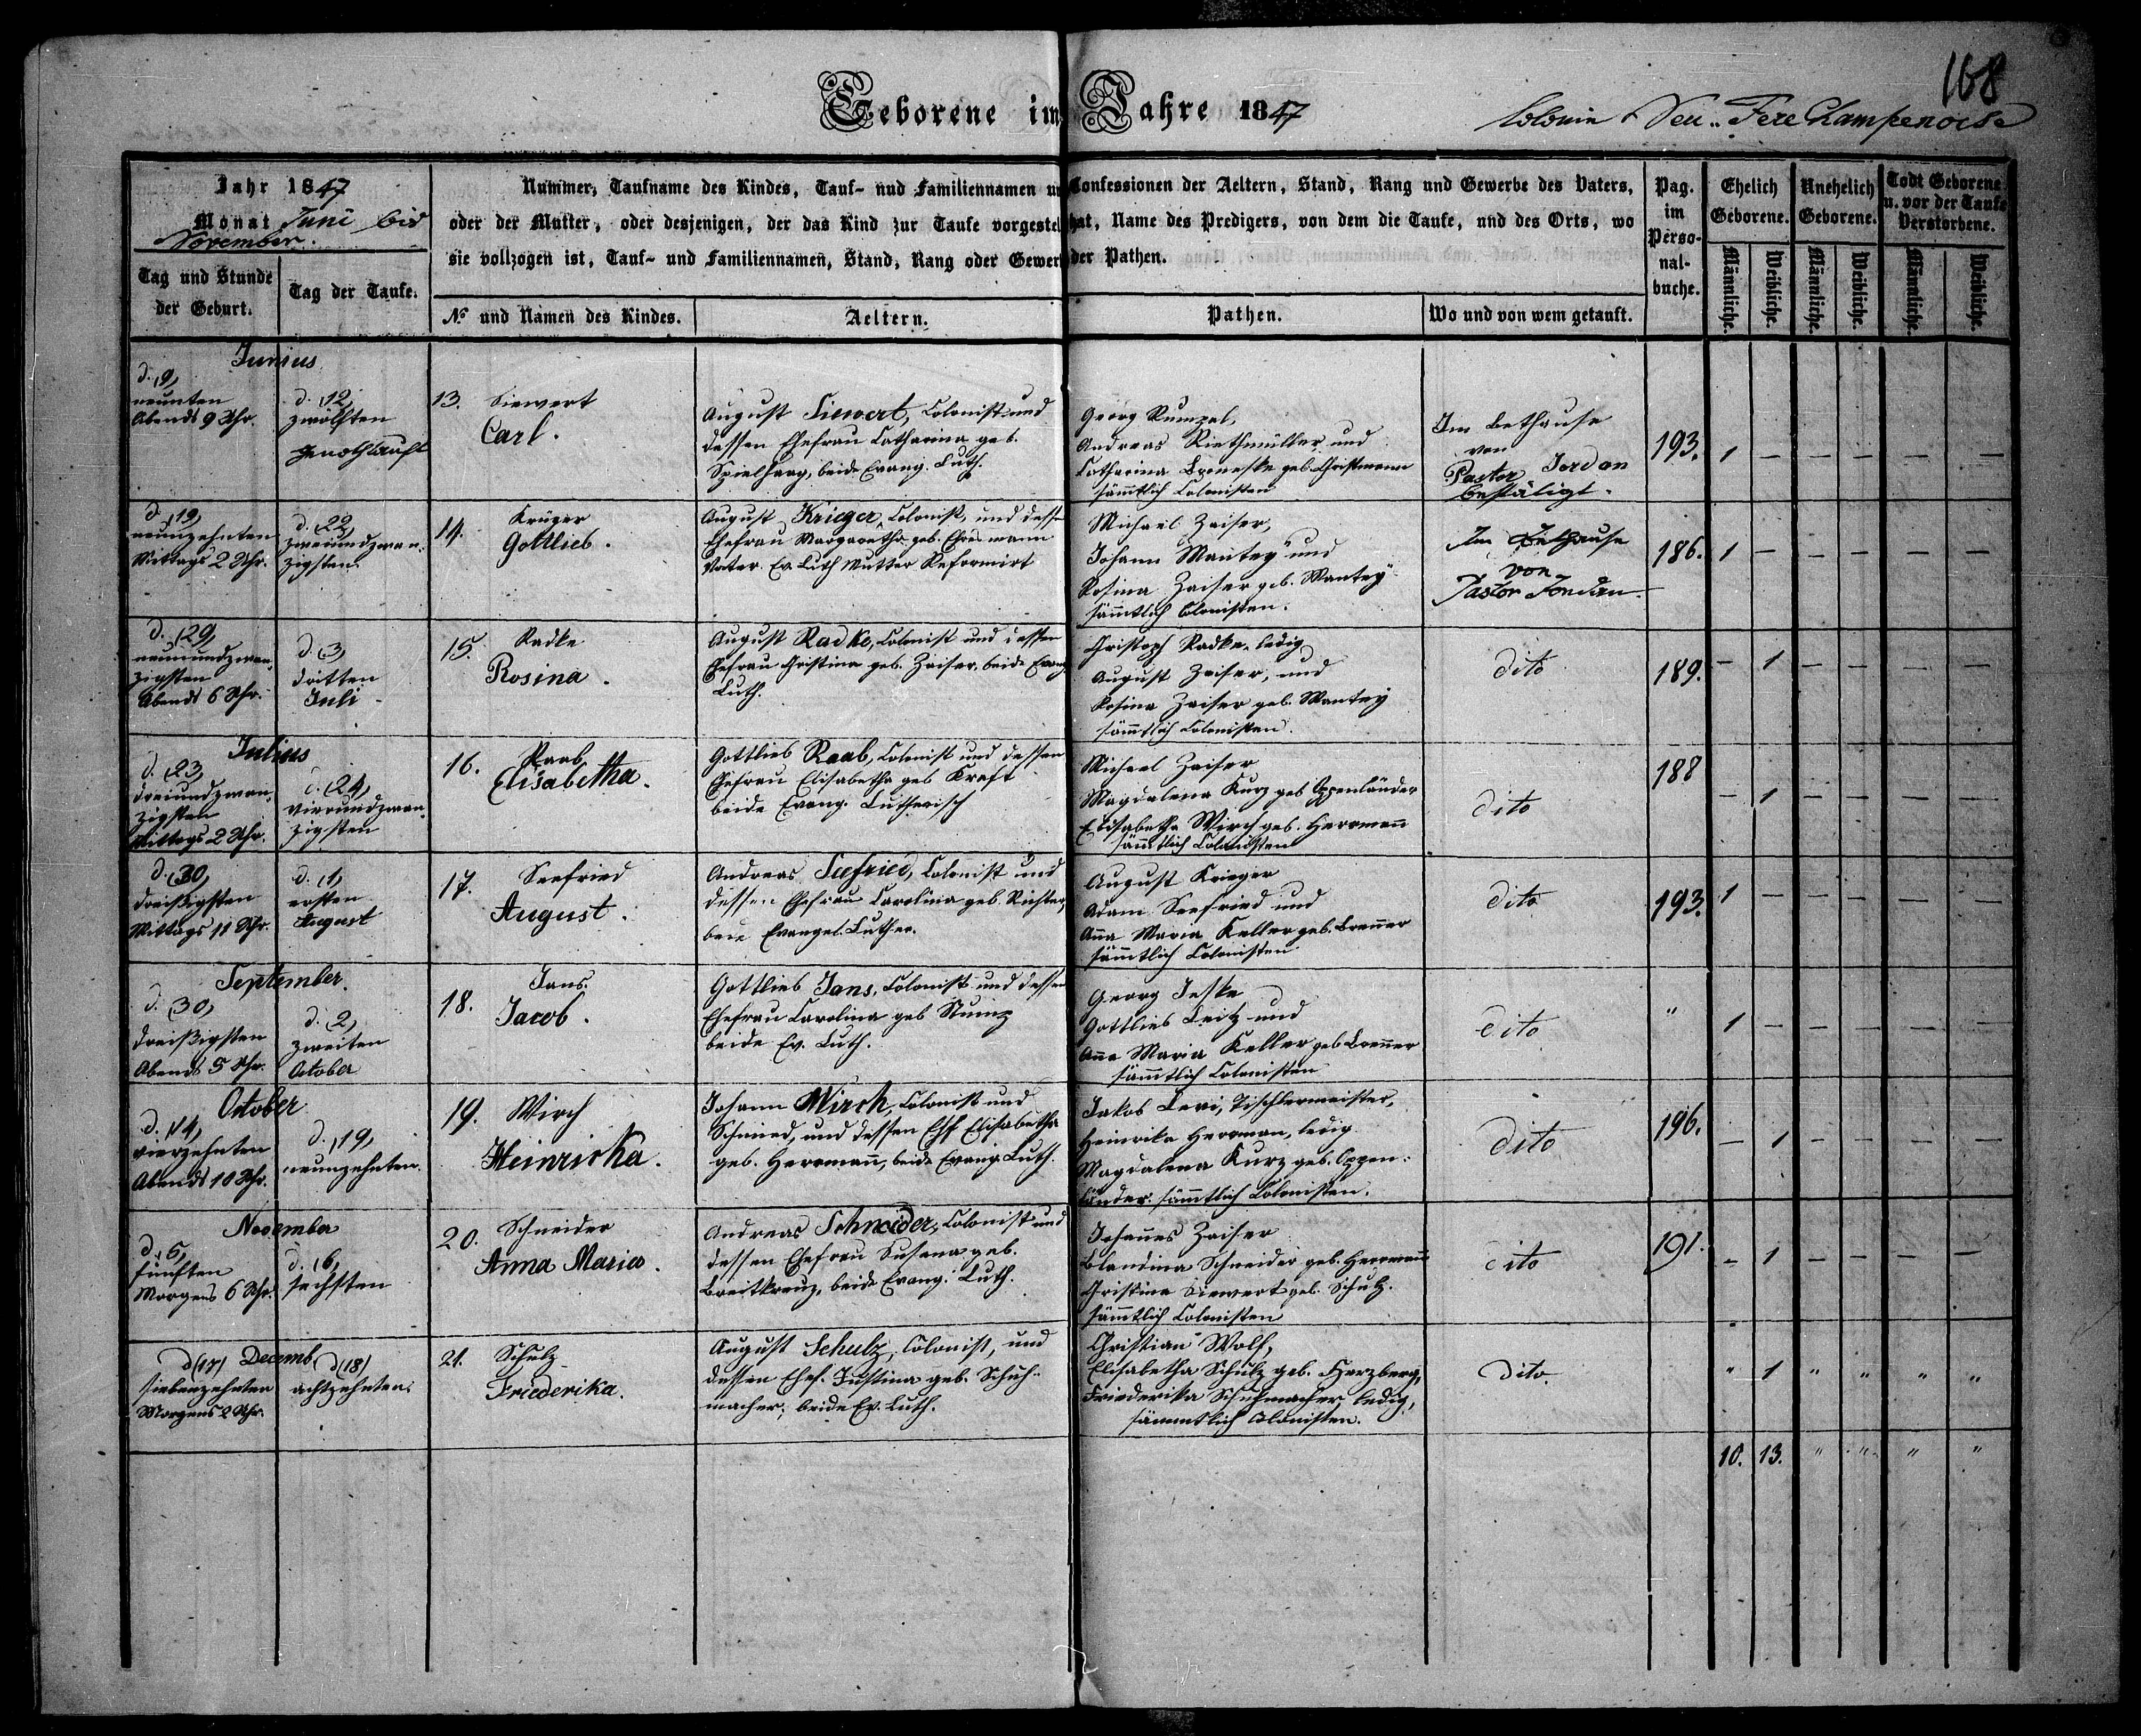 168
Geborene im Jahre 1847
Colonie Neu-Fere Champenoise
Jahr 1847
Monat Juni bis
November.
Nummer, Taufname des Kindes, Tauf- nud Familiennamen un Confessionen der Aeltern, Stand, Rang und Gewerbe des Vaters,
oder der Mutter, oder desjenigen, der das Kind zur Taufe vorgestel hat, Name des Predigers, von dem die Taufe, und des Orts, wo
sie vollzogen ist, Tauf- und Familiennamen, Stand, Rang oder Gewer der Pathen.
Pag. im Perso-nal-buche.
Ehelich Geborene.
Unehelich Geborene.
Todt Geborene u. vor der Taufe Verstorbene.
Tag und Stunde der Geburt.
Tag der Taufe.
№ und Namen des Kindes.
Aeltern.
Pathen.
Wo und von wem getauft.
Männliche. Weibliche. Männliche. Weibliche. Männliche. Weibliche.
Junius
d. (9)
neunten
Abends 9 Uhr.
d. (12)
zwölften
genothtauft
13. Siewert
Carl.
August Siewert, Colonist und
dessen Ehefrau Catharina geb.
Spielhaag, beide Evang. Luth.
Georg Rumpel,
Andreas Riethmüller und
Catharina geb. Christmann
sämtlich Colonisten
Im Bethause
von
Pastor Jordan
bestätigt.
193. 1 — — — — —
d. (19)
neunzehnten
Mittags 2 Uhr.
d. (22)
zweiundzwan-
zigsten.
14. Krüger
Gottlieb.
August Krieger, Colonist, und dessen
Ehefrau Margaretha geb. Ehresmann
Vater Ev. Luth Mutter Reformirt
Michael Zaiser,
Johann Mantey und
Rosina Zaiser geb. Mantey
sämtlich Colonisten.
Im Bethause
von
Pastor Jordan.
186. 1 — — — — —
d. (29)
neunundzwan-
zigsten
Abends 6 Uhr.
d. (3)
dritten
Juli
15. Radke
Rosina.
August Radke, Colonist und dessen
Ehefrau Christina geb. Zaiser, beide Evang.
Luth.
Christoph Radke, ledig
August Zaiser, und
Rosina Zaiser geb. Mantey
sämtlich Colonisten.
dito
189. — 1 — — — —
Julius
d. (23)
dreiundzwan-
zigsten
Mittags 2 Uhr.
d. (24)
vierundzwan-
zigsten
16. Raab
Elisabetha.
Gottlieb Raab, Colonist und dessen
Ehefrau Elisabetha geb Kraft
beide Evang. Lutherisch
Michael Zaiser
Magdalena Kurz geb Oppenländer
Elisabetha Wirch geb. Herrmann
sämtlich Colonisten
dito
188 — 1 — — — —
d. (30)
dreißigsten
Mittags 11 Uhr.
d. (1)
ersten
August
17. Seefried
August.
Andreas Seefried, Colonist und
dessen Ehefrau Carolina geb. Richter,
beide Evangel. Luther.
August Krieger
Adam Seefried und
Anna Maria Keller geb. Brenner
sämtlich Colonisten
dito
193. 1 — — — — —
September.
d. (30)
dreißigsten
Abends 5 Uhr.
d. (2)
zweiten
October
18. Jans.
Jacob.
Gottlieb Jans, Colonist und dessen
Ehefrau Carolina geb
beide Ev. Luth.
Georg Jeske
Gottlieb Leitz und
Anna Maria Keller geb Brenner
sämtlich Colonisten
dito
" 1 — — — — —
October
d. (14)
vierzehnten
Abends 10 Uhr.
d. (19)
neunzehnten.
19. Wirch
Heinricka.
Johann Wirch, Colonist und
Schmied, und dessen Ehf Elisabetha
geb. Herrmann, beide Evang. Luth.
Jakob Levi, Tischlermeister,
Heinrika Herrman, ledig
Magdalena Kurz geb. Oppen-
länder. sämtlich Colonisten.
dito
196. — 1 — — — —
November
d. (5)
fünften
Morgens 6 Uhr.
d. (6)
sechsten
20. Schneider
Anna Maria.
Andreas Schneider, Colonist und
dessen Ehefrau Susana geb.
Breitkreuz, beide Evang. Luth.
Johannes Zaiser
Blandina Schneider geb. Herrmann
Christina Siewert geb. Schulz.
sämtlich Colonisten
dito
191. — 1 — — — —
Decemb
d (17)
siebenzehnten
Morgens 2 Uhr.
d (18)
achtzehnten.
21. Schulz
Friederika.
August Schulz, Colonist, und
dessen Ehef. Justina geb. Schuh-
macher, beide Ev. Luth.
Christian Wolf,
Elisabetha Schulz geb. Herzberg,
Friederika Schuhmacher ledig,
sämmtlich Colonisten.
dito.
" 1 " " " "
10. 13. " " " "